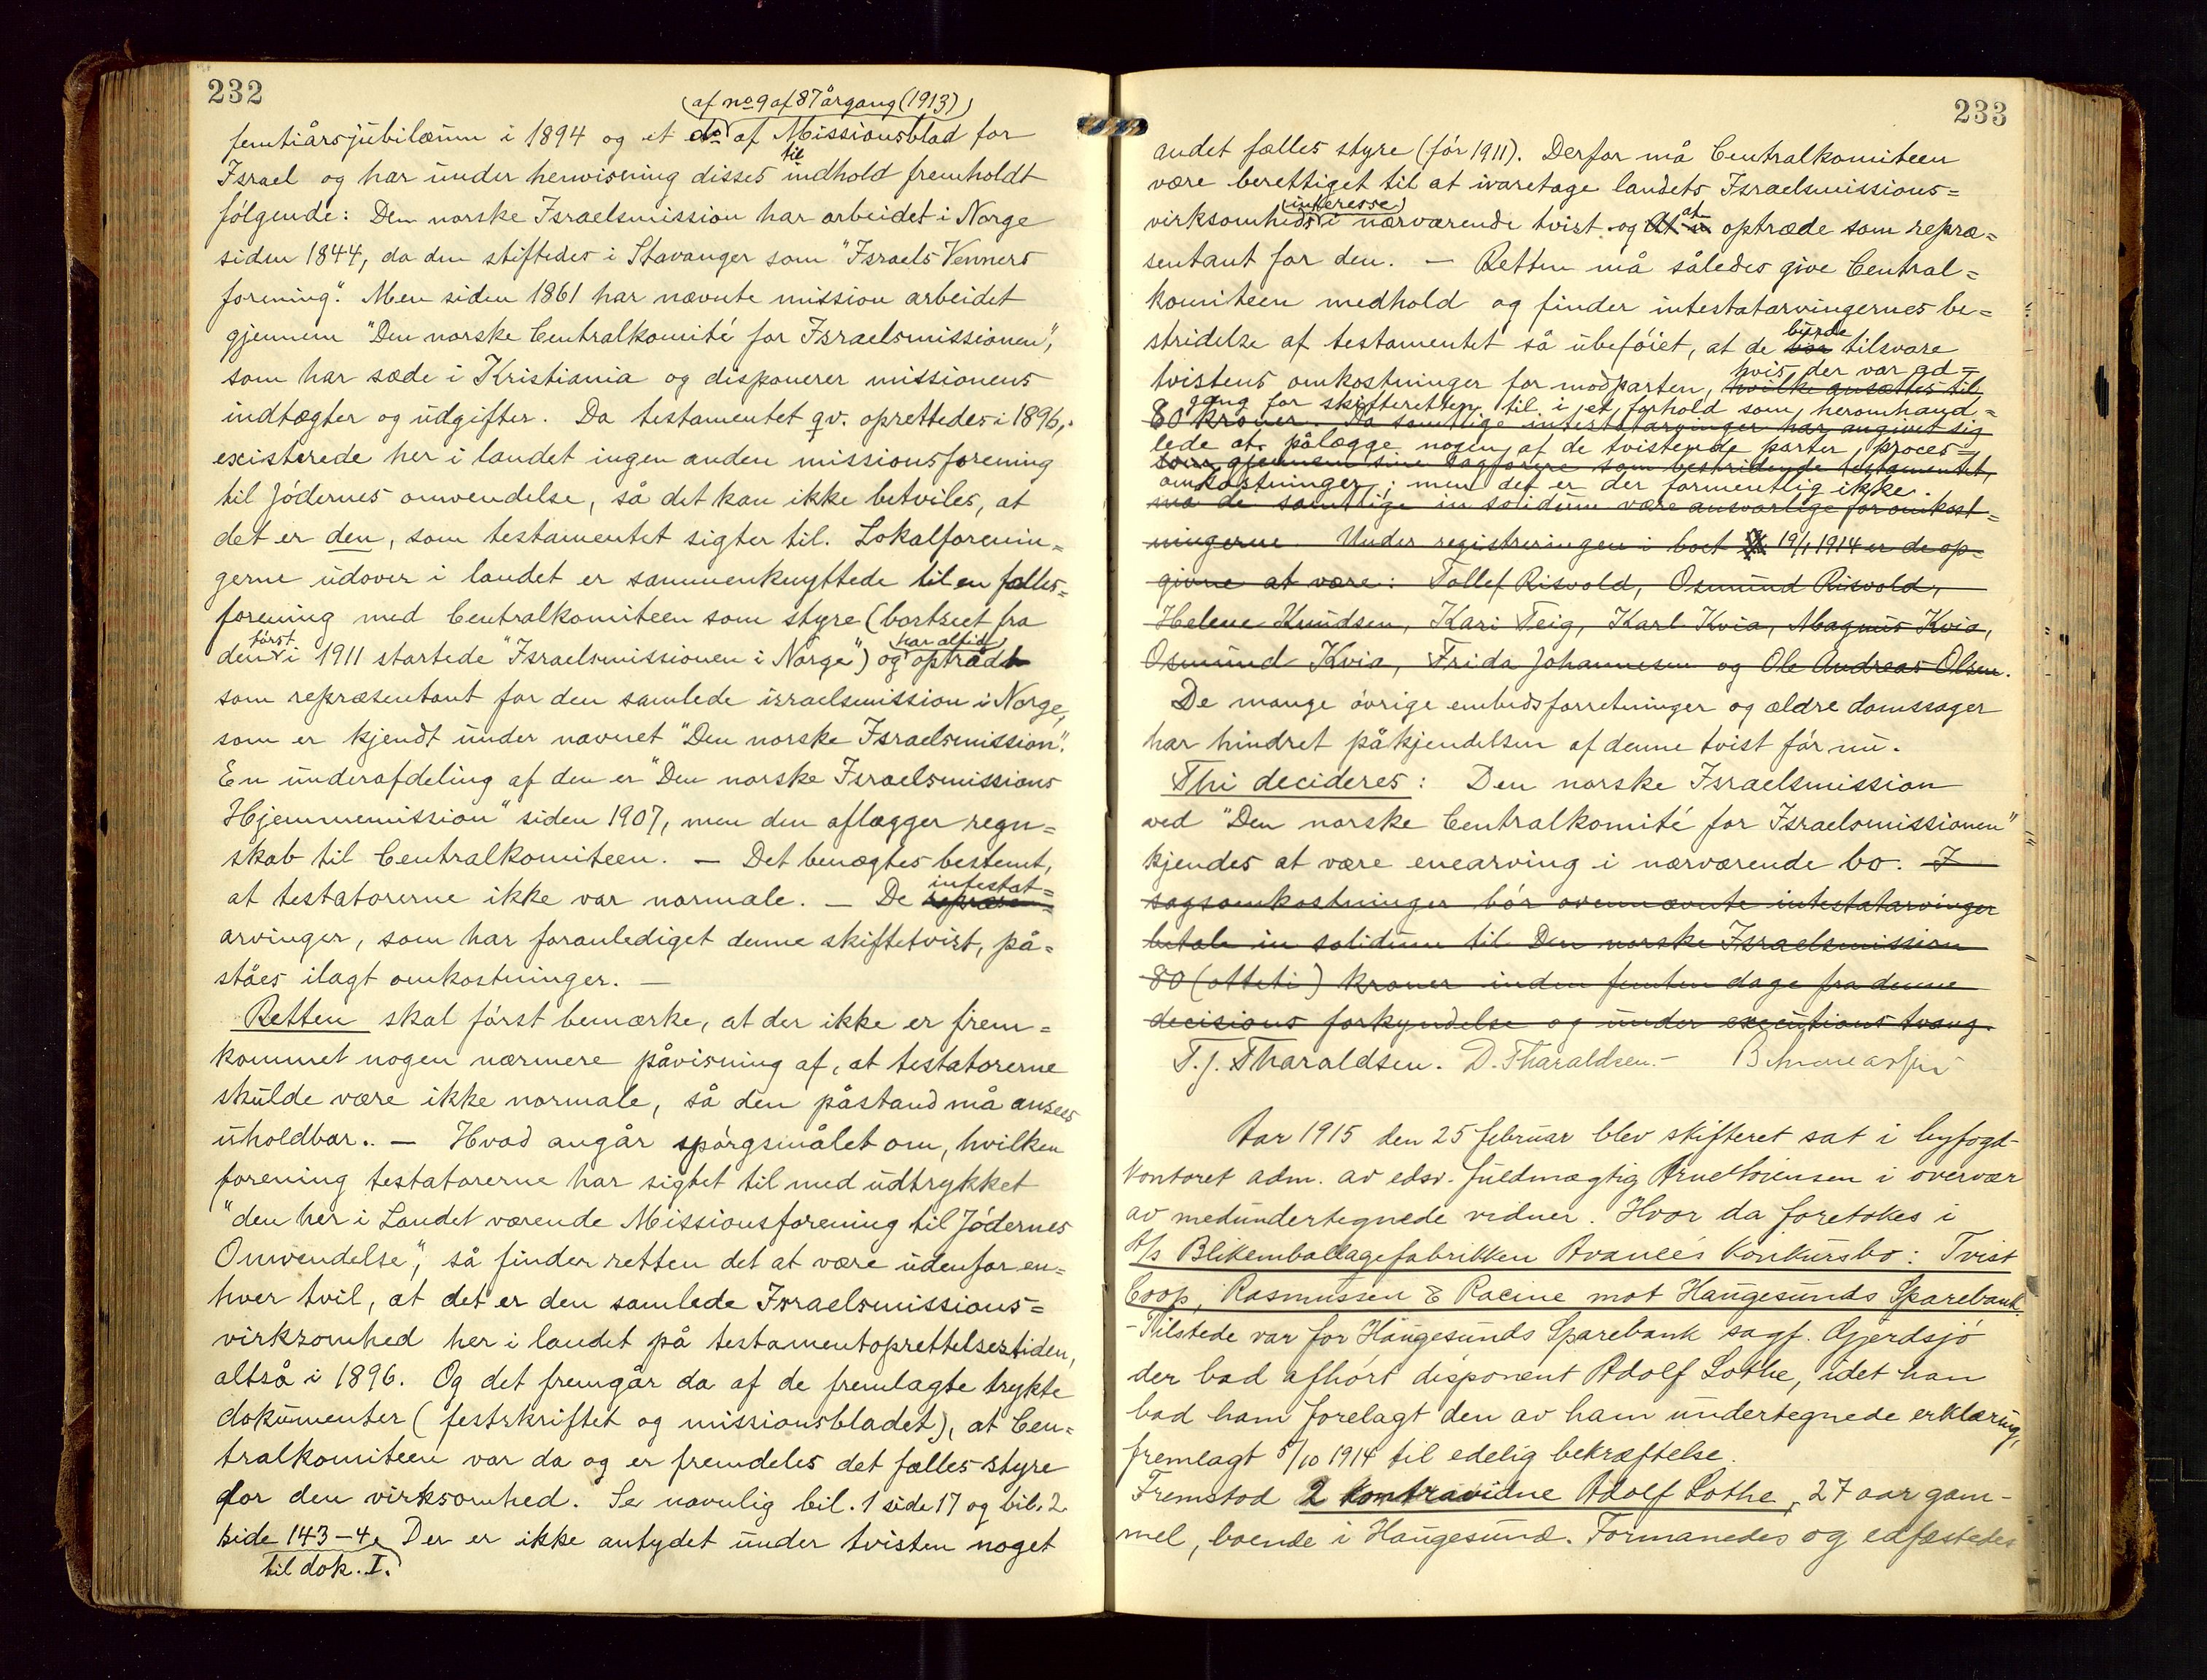 232
(af no 9 af 87 årgang (1913))
femtiårsjubilæum i 1894 og et do af Missionsblad for
til
Israel og har under henvisning disses indhold fremholdt
følgende: Den norske Israelsmission har arbeidet i Norge
siden 1844, da den stiftedes i Stavanger som "Israels Venners
forening". Men siden 1861 har nævnte mission arbeidet
gjennem "Den norske Centralkomité for Israelsmissionen",
som har sæde i Kristiania og disponerer missionens
indtægter og udgifter. Da testamentet qv. oprettedes i 1896,
existerede her i landet ingen anden missionsforening
til Jødernes omvendelse, så det kan ikke betviles, at
det er den, som testamentet sigter til. Lokalforenin=
gerne udover i landet er sammenknyttede til en fælles=
forening med Centralkomiteen som styre (bortseet fra
først har altid
den i 1911 startede "Israelsmissionen i Norge") og optrådt
som repræsentant for den samlede israelsmission i Norge,
som er kjendt under navnet "Den norske Israelsmission".
En underafdeling af den er "Den norske Israelsmissions
Hjemmemission" siden 1907, men den aflægger regn=
skab til Centralkomiteen. — Det benægtes bestemt,
intestat=
at testatorerne ikke var normale. — De
arvinger, som har foranlediget denne skiftetvist, på=
ståes ilagt omkostninger. —
Retten skal først bemærke, at der ikke er frem=
kommet nogen nærmere påvisning af, at testatorerne
skulde være ikke normale, så den påstand må ansees
uholdbar. — Hvad angår spørgsmålet om, hvilken
forening testatorerne har sigtet til med udtrykket
"den her i Landet værende Missionsforening til Jødernes
Omvendelse", så finder retten det at være udenfor en=
hver tvil, at det er den samlede Israelsmissions=
virksomhed her i landet på testamentoprettelsestiden,
altså i 1896. Og det fremgår da af de fremlagte trykte
dokumenter (festskriftet og missionsbladet), at Cen=
tralkomiteen var da og er fremdeles det fælles styre
for den virksomhed. Se navnlig bil. 1 side 17 og bil. 2
side 143–4. Der er ikke antydet under tvisten noget
til dok. I.
233
andet fælles styre (før 1911). Derfor må Centralkomiteen
være berettiget til at ivaretage landets Israelsmissions=
(interesse)
virksomheds i nærværende tvist og at optræde som repræ=
sentant for den. — Retten må således give Central=
komiteen medhold og finder intestatarvingernes be=
stridelse af testamentet så ubeføiet, at de bør tilsvare
burde
tvistens omkostninger for modparten, hvilke ansættes til
hvis der var ad=
gang for skifteretten til i et forhold som heromhand=
80 kroner. Da samtlige intestatarvinger har angivet sig
lede at pålægge nogen af de tvistende parter proces=
som gjennem sine sagførere som bestridende testamentet,
omkostninger; men det er der formentlig ikke.
må de samtlige in solidum være ansvarlige for omkost=
ningerne. Under registreringen i boet 19/1 1914 er de op=
givne at være: Tollef Risvold, Osmund Risvold,
Helene Knudsen, Kari Teig, Karl Kvia, Magnus Kvia,
Osmund Kvia, Frida Johannesen og Ole Andreas Olsen.
De mange øvrige embedsforretninger og ældre domssager
har hindret påkjendelsen af denne tvist før nu.
Thi decideres: Den norske Israelsmission
ved "Den norske Centralkomité for Israelsmissionen"
kjendes at være enearving i nærværende bo. I
sagsomkostninger bør ovennævnte intestatarvinger
betale in solidum til Den norske Israelsmission
80 (otteti) kroner inden femten dage fra denne
decisions forkyndelse og under executions tvang.
T. J. Tharaldsen. D. Tharaldsen. –
Aar 1915 den 25 februar blev skifteret sat i byfogd-
kontoret adm. av edsv. fuldmægtig Arne Sörensen i overvær
av medundertegnede vidner. Hvor da foretokes i
A/s Blikemballagefabrikken Avancés konkursbo: Tvist
Coop, Rasmussen & Racine mot Haugesunds Sparebank.
– Tilstede var for Haugesunds Sparebank sagf. Gjerdsjö
der bad afhört disponent Adolf Lothe, idet han
bad ham forelagt den av ham undertegnede erklæring,
fremlagt 5/10 1914 til edelig bekræftelse.
Fremstod 2 kontravidne Adolf Lothe, 27 aar gam-
mel, boende i Haugesund. Formanedes og edfæstedes